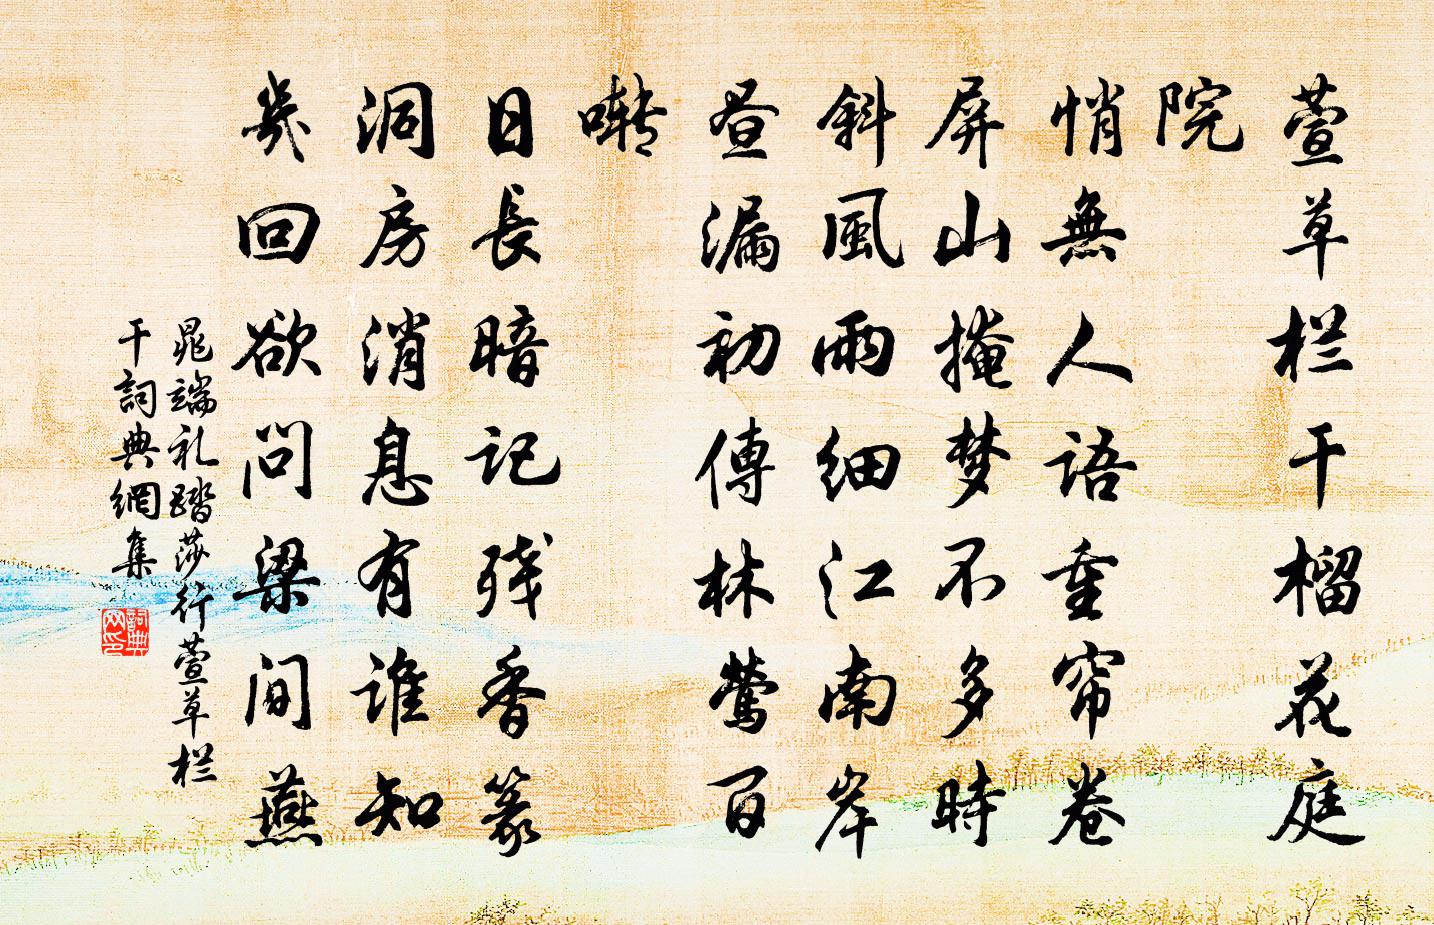 萱草栏干榴花庭
院
悄無人语重帘卷
屏山掩梦不多時
斜風雨细江南岸
昼漏初傳林莺百
啭
日長暗记残香篆
洞房消息有谁知
幾回欲问梁间燕
晁端礼踏莎行萱草栏
干詞典網集
詞典网印